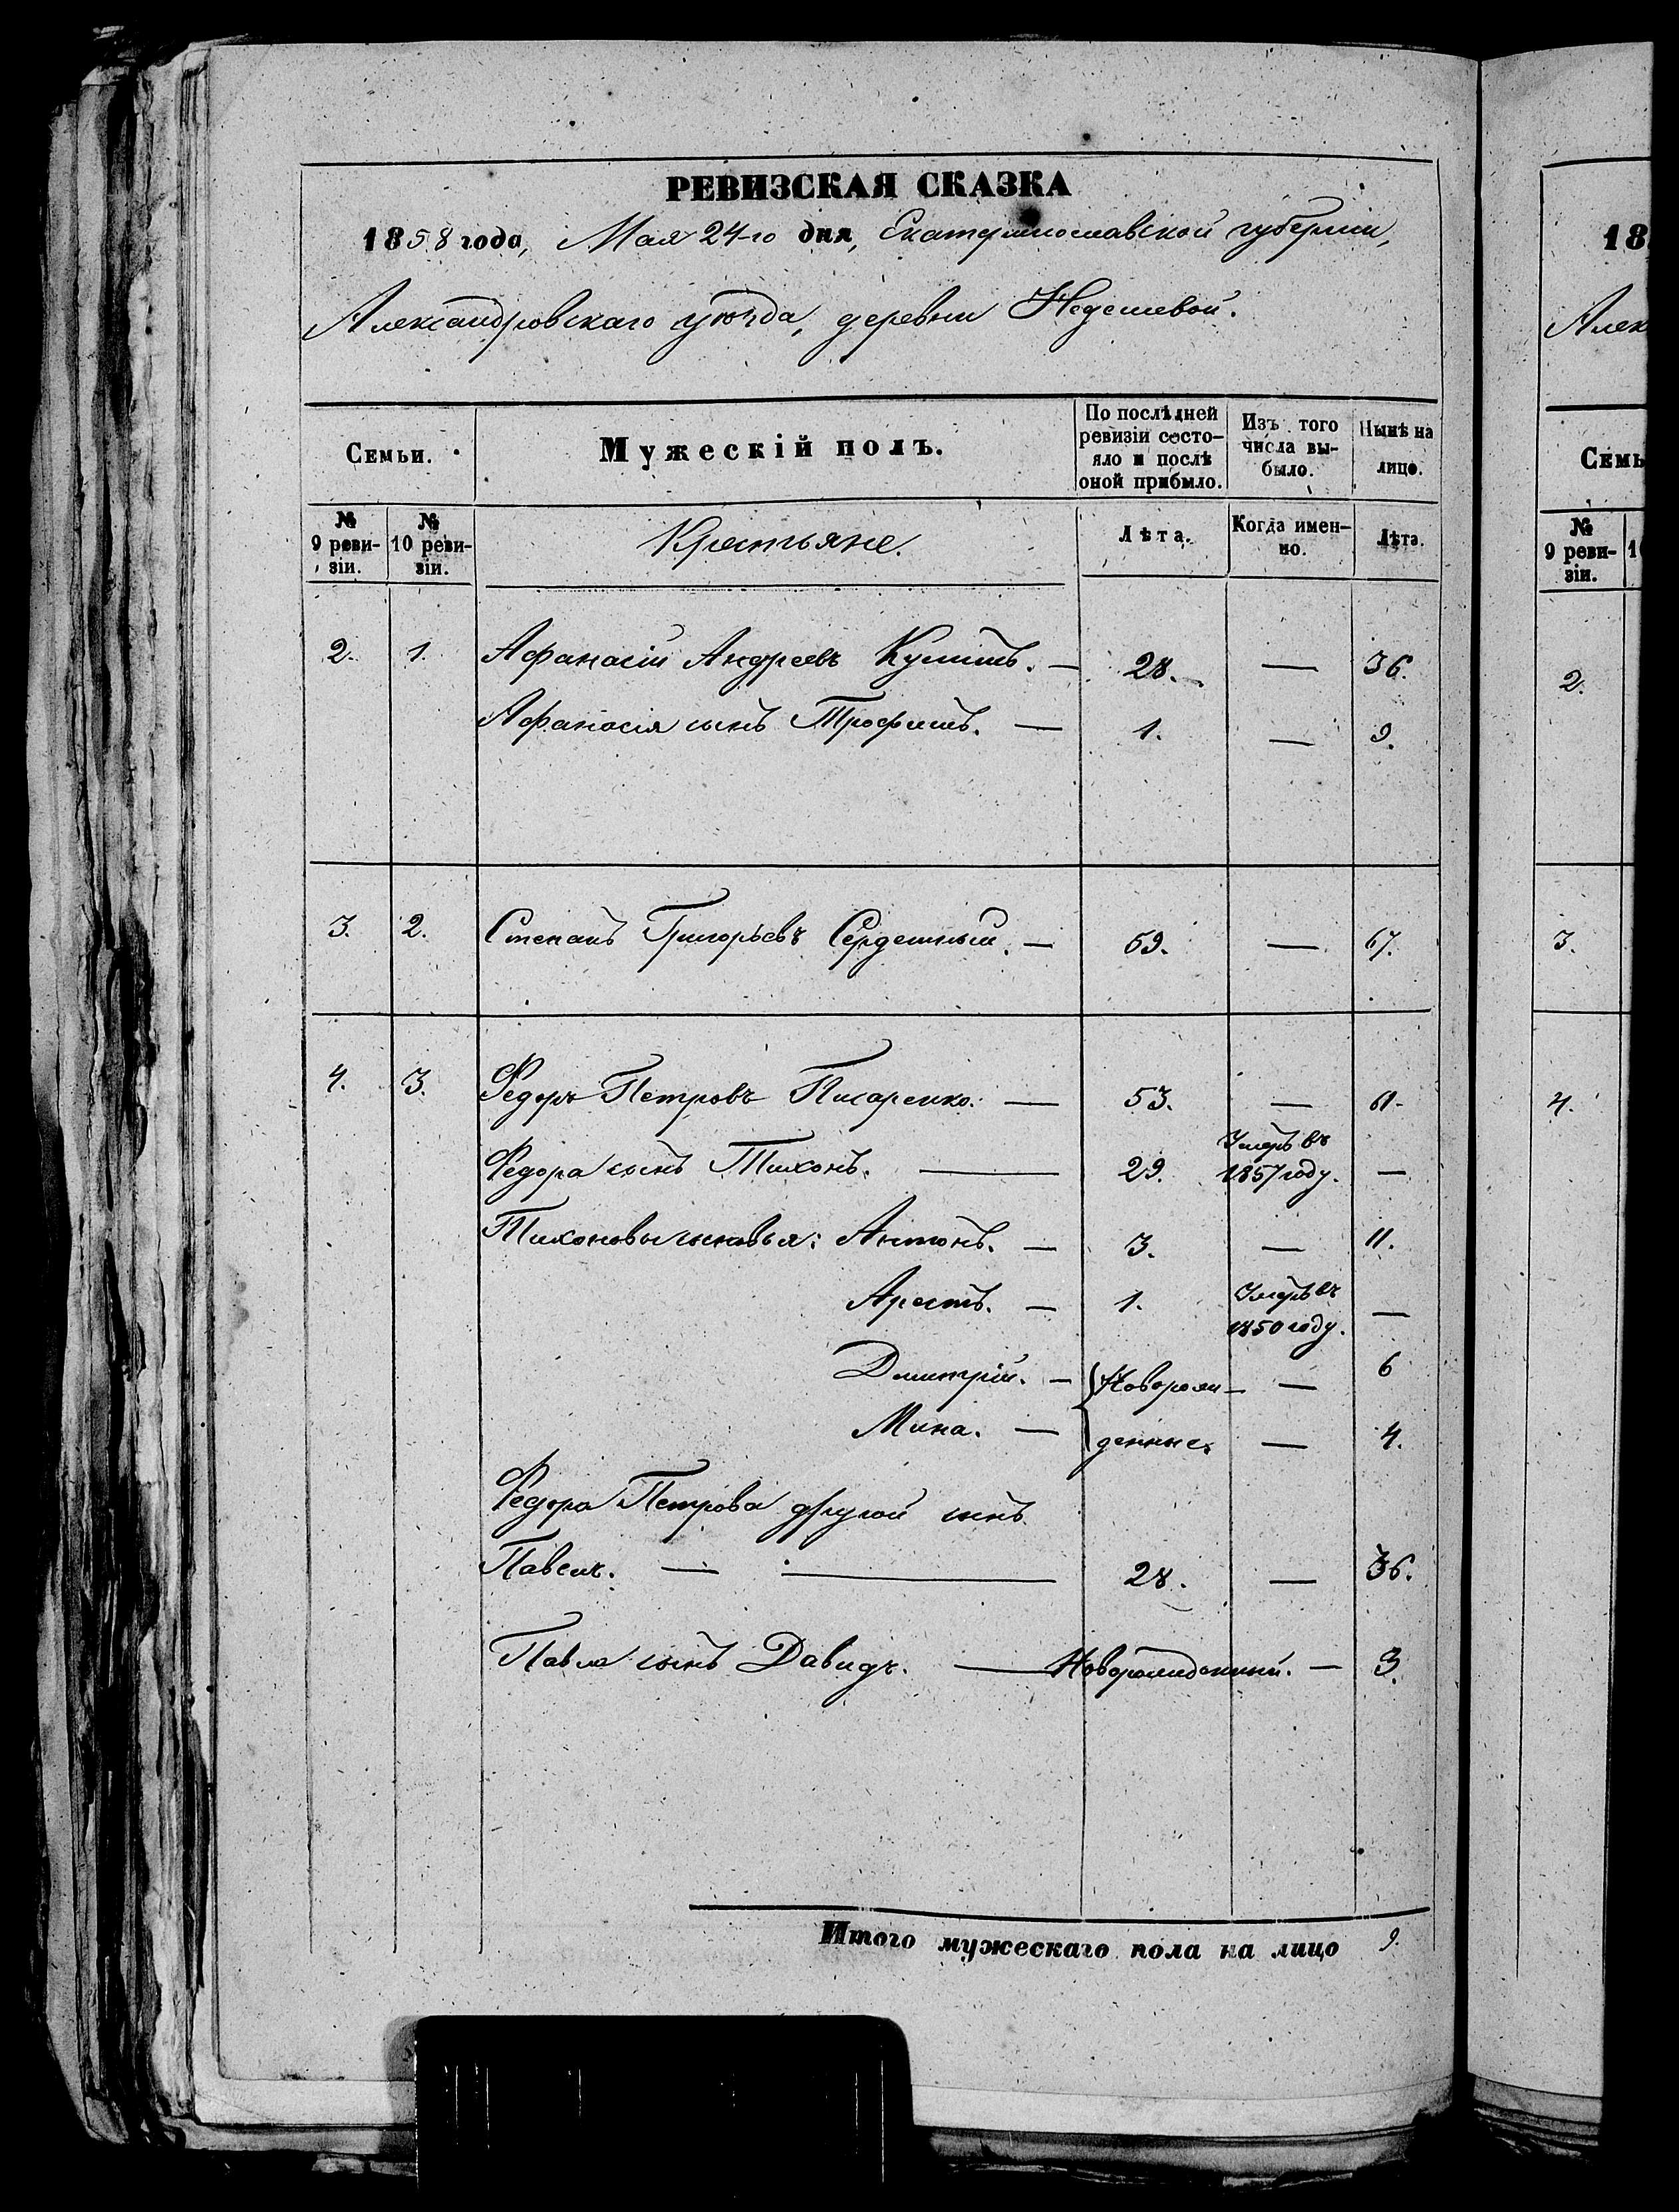 РЕВИЗСКАЯ СКАЗКА
1858 года, Мая 24-го дня, Екатеринославской губернии,
Александровскаго уѣзда, деревни Недешевой.
Семьи.
Мужескій полъ.
По послѣдней ревизіи состояло и послѣ оной прибыло.
Изъ того числа выбыло.
Нынѣ на лицо.
№ 9 ревизіи.
№ 10 ревизіи.
Крестьяне.
Лѣта.
Когда именно.
Лѣта.
2. 1. Афанасій Андреевъ — 28. — 36.
Афанасія сынъ Трофимъ. — 1. — 9.
3. 2. Степанъ Григорьевъ Сердешный. — 59. — 67.
4. 3. Федоръ Петровъ Писаренко. — 53. — 61.
Федора сынъ Тихонъ. — 29. Умеръ въ 1857 году. —
Тихоновы сыновья: Антонъ. — 3. — 11.
— 1. Умеръ въ 1850 году. —
Дмитрій. — Новорож- — 6
Мина. — денные. — 4.
Федора Петрова другой сынъ
Павелъ. — — 28. — 36.
Павла сынъ Давидъ. — Новорожденный. — 3.
Итого мужескаго пола на лицо 9.
18
Алек
Семь
№ 9 ревизіи.
1
2.
3.
4.